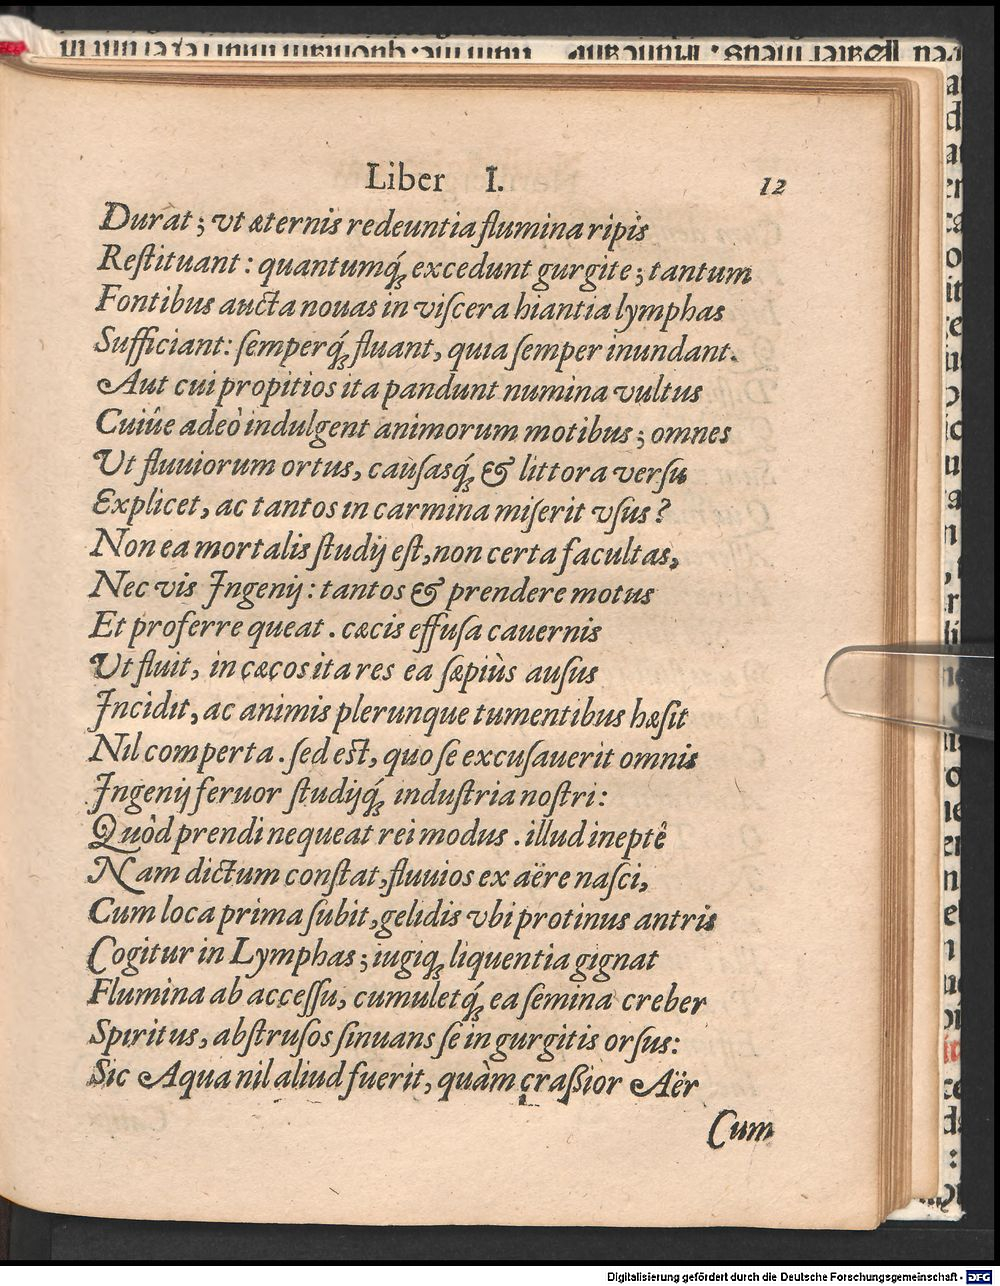 Liber I. 12
Durat; vt æternis redeuntia flumina ripis
Reſtituant: quantumq́; excedunt gurgite; tantum
Fontibus aucta nouas in viſcera hiantia lymphas
Sufficiant: ſemperq́; fluant, quia ſemper inundant.
Aut cui propitios ita pandunt numina vultus
Cuiûe adeò indulgent animorum motibus; omnes
Ut fluuiorum ortus, cauſasq́; & littora verſu
Explicet, ac tantos in carmina miſerit vſus?
Non ea mortalis ſtudij eſt, non certa facultas,
Nec vis Ingenij: tantos & prendere motus
Et proferre queat. cæcis effuſa cauernis
Ut fluit, in cæcos ita res ea ſæpiùs auſus
Incidit, ac animis plerunque tumentibus hæſit
Nil comperta. ſed eſt, quo ſe excuſauerit omnis
Ingenij feruor ſtudijq́; induſtria noſtri:
Quòd prendi nequeat rei modus. illud ineptê
Nam dictum conſtat, fluuios ex aëre naſci,
Cum loca prima ſubit, gelidis vbi protinus antris
Cogitur in Lymphas; iugiq; liquentia gignat
Flumina ab acceſſu, cumuletq́; ea ſemina creber
Spiritus, abſtruſos ſinuans ſe in gurgitis orſus:
Sic Aqua nil aliud fuerit, quàm craſsior Aër
Cum
Digitalisierung gefördert durch die Deutsche Forschungsgemeinschaft - DFG